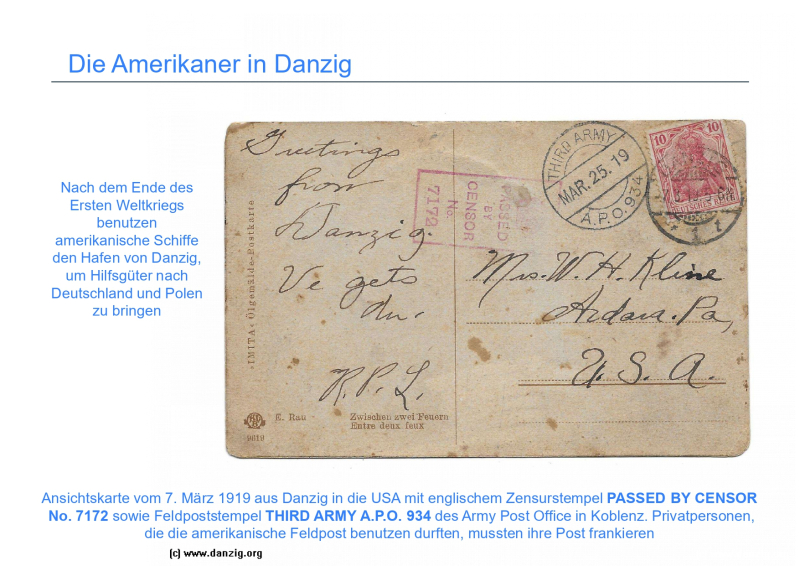 Die Amerikaner in Danzig
Nach dem Ende des
Ersten Weltkriegs
benutzen
amerikanische Schiffe
den Hafen von Danzig,
um Hilfsgüter nach
Deutschland und Polen
zu bringen
Greetings
from
Danzig.
Ve gets
du.
R.P.L.
IMITA« Ölgemälde-Postkarte
E. Rau
9619
Zwischen zwei Feuern
Entre deux feux
PASSED
BY
CENSOR
No.
7172
THIRD ARMY
MAR. 25. 19
A.P.O. 934
10 10
DEUTSCHES REICH
Mrs. W. H. Kline
Ardara. Pa,
U. S. A.
Ansichtskarte vom 7. März 1919 aus Danzig in die USA mit englischem Zensurstempel PASSED BY CENSOR
No. 7172 sowie Feldpoststempel THIRD ARMY A.P.O. 934 des Army Post Office in Koblenz. Privatpersonen,
die die amerikanische Feldpost benutzen durften, mussten ihre Post frankieren
(c) www.danzig.org